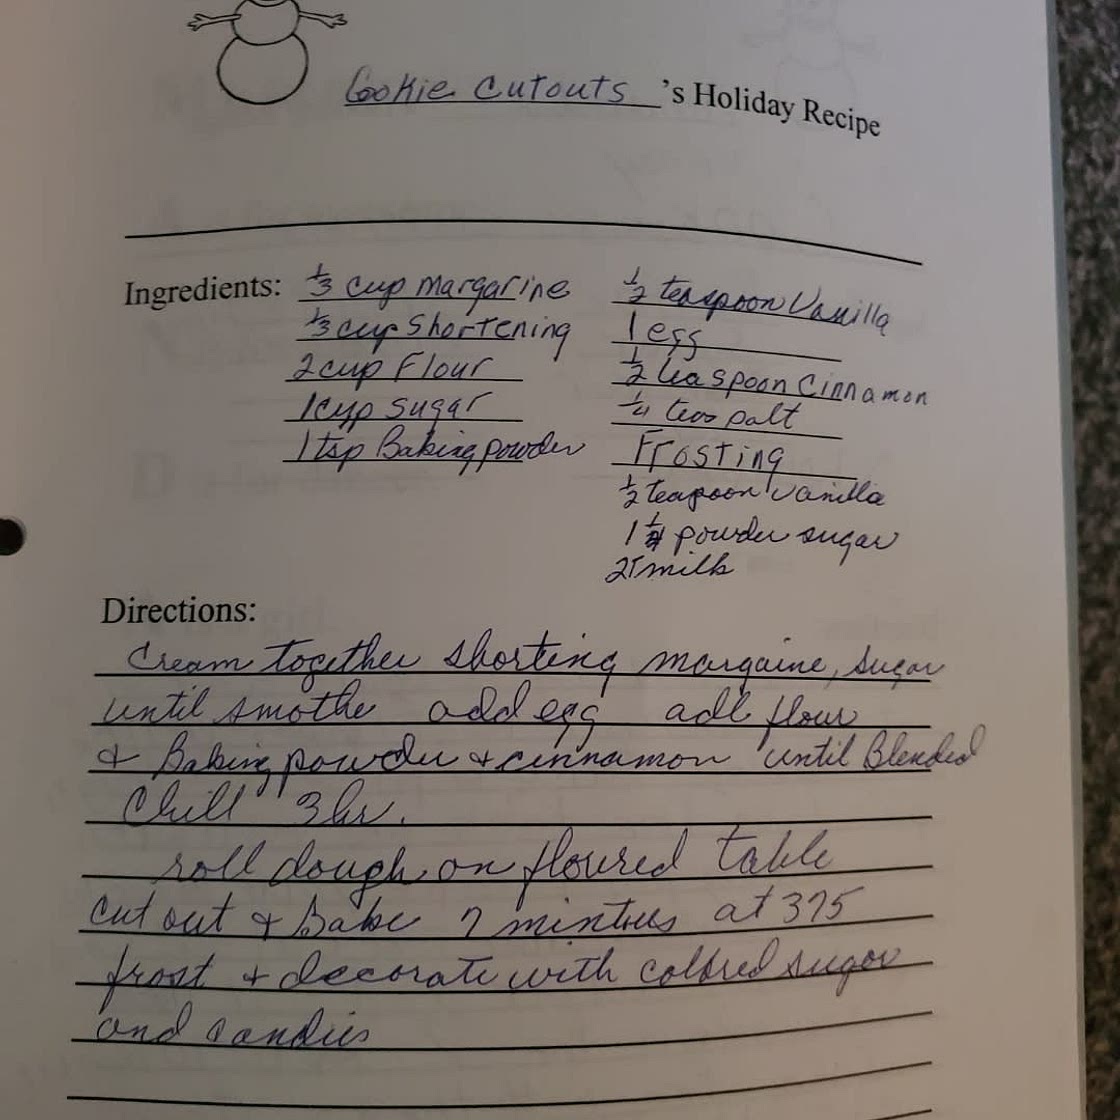 Cookie Cutouts 's Holiday Recipe
Ingredients:
1/3 cup margarine
1/3 cup Shortening
2 cup Flour
1 cup sugar
1 tsp Baking powder
1/2 teaspoon Vanilla
1 egg
1/2 teaspoon Cinnamon
1/4 teas salt
Frosting
1/2 teapoon vanilla
1 powder sugar
2T milk
Directions:
Cream together shorting margaine, sugar
until smothe add egg add flour
& Baking powder & cinnamon until Blended
Chill 3 hr.
roll dough on floured table
cut out & Bake 7 mintues at 375
frost & decorate with colored sugar
and candies